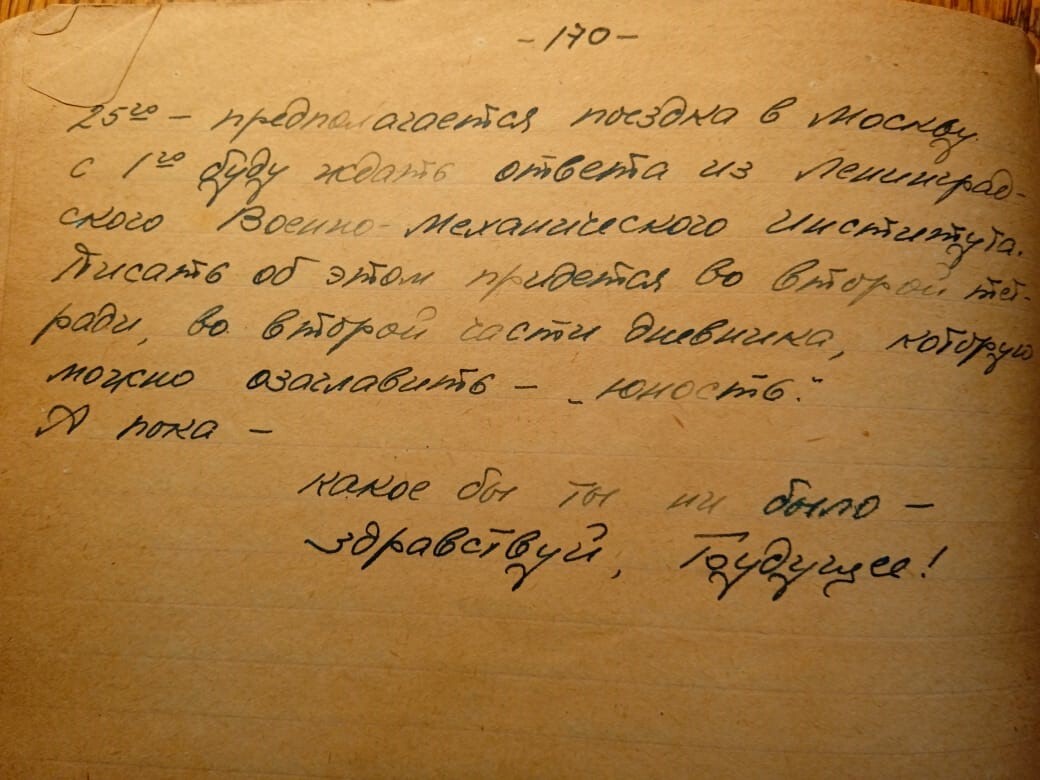 - 170 -
25го - предполагается поездка в Москву.
с 1го буду ждать ответа из Ленинград-
ского Военно-Механического Института.
Писать об этом придется во второй тет-
ради, во второй части дневника, которую
можно озаглавить - „юность".
А пока -
какое бы ты ни было -
здравствуй, Будущее!